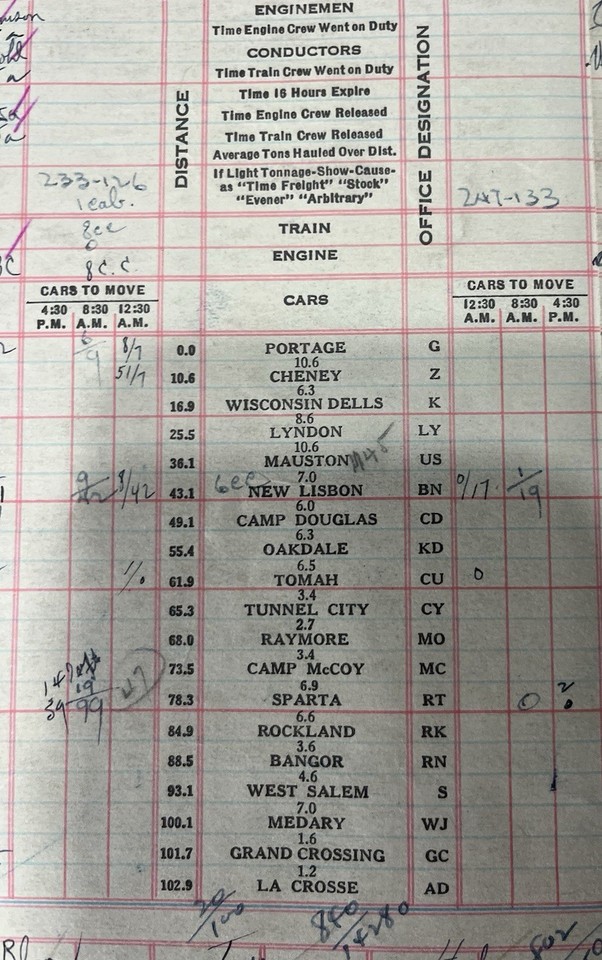 ENGINEMEN
Time Engine Crew Went on Duty
CONDUCTORS
Time Train Crew Went on Duty
Time 16 Hours Expire
Time Engine Crew Released
Time Train Crew Released
Average Tons Hauled Over Dist.
If Light Tonnage-Show-Cause-
as "Time Freight" "Stock"
"Evener" "Arbitrary"
DISTANCE
OFFICE DESIGNATION
233-126
1 cab.
247-133
TRAIN
8cc
0
ENGINE
8 C.C.
CARS TO MOVE
4:30 P.M. 8:30 A.M. 12:30 A.M.
CARS
CARS TO MOVE
12:30 A.M. 8:30 A.M. 4:30 P.M.
6/9 8/7 0.0 PORTAGE G
10.6
51/7 10.6 CHENEY Z
6.3
16.9 WISCONSIN DELLS K
8.6
25.5 LYNDON LY
10.6
36.1 MAUSTON US
7.0
8/42 43.1 6cc NEW LISBON BN 0/17 1/19
6.0
49.1 CAMP DOUGLAS CD
6.3
55.4 OAKDALE KD
6.5
1/0 61.9 TOMAH CU 0
3.4
65.3 TUNNEL CITY CY
2.7
68.0 RAYMORE MO
3.4
73.5 CAMP McCOY MC
6.9
39 99 47 78.3 SPARTA RT 0 2/0
6.6
84.9 ROCKLAND RK
3.6
88.5 BANGOR RN
4.6
93.1 WEST SALEM S
7.0
100.1 MEDARY WJ
1.6
101.7 GRAND CROSSING GC
1.2
102.9 LA CROSSE AD
20/100 840/14280
802